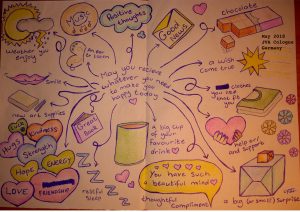 Weather you enjoy
Music
Positive thoughts
Good News
chocolate
May 2018
JVA Cologne
Germany
an ear to listen
a wish come true
Smile
May you receive
whatever you need
to make you
happy today
new art supplies
Great Book
a big cup of
your favourite
drink
help and support
Hugs
Kindness
Strength
HOPE
ENERGY
LOVE
FRIENDSHIP
restful sleep
You have such
a beautiful mind
thoughtful
compliment
a big (or small) Surprise